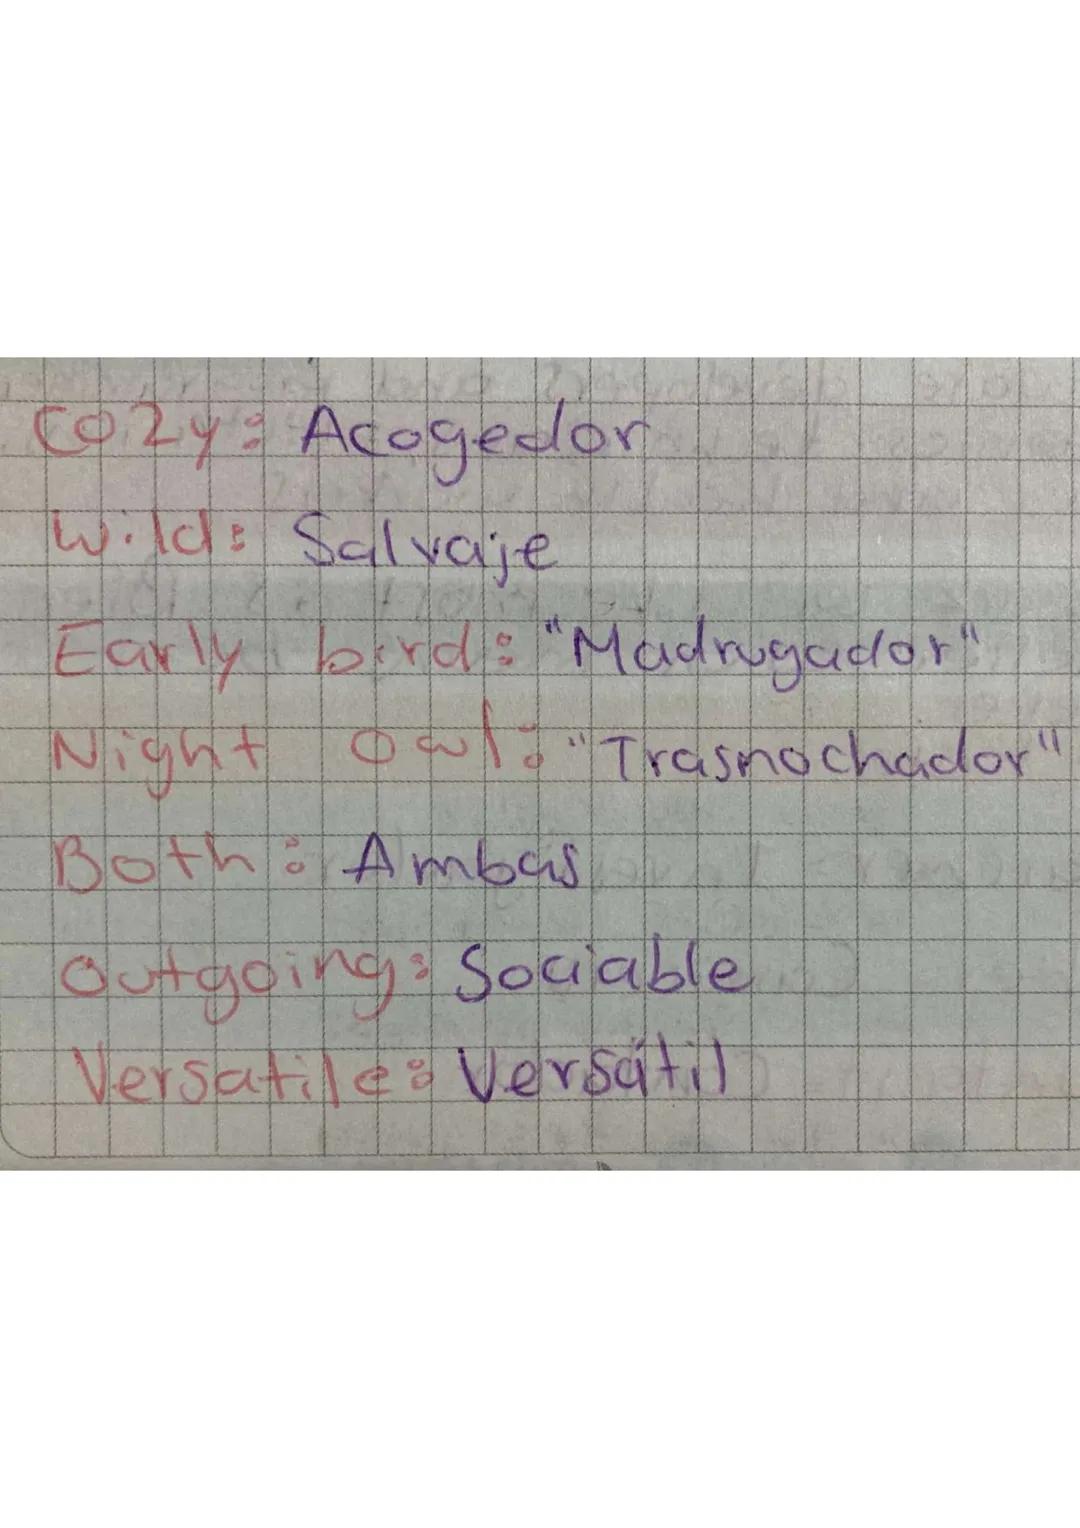 Cozy: Acogedor
Wild: Salvaje
Early bird: "Madrugador"
Night owl: "Trasnochador"
Both: Ambas
Outgoing: Sociable
Versatile: Versátil